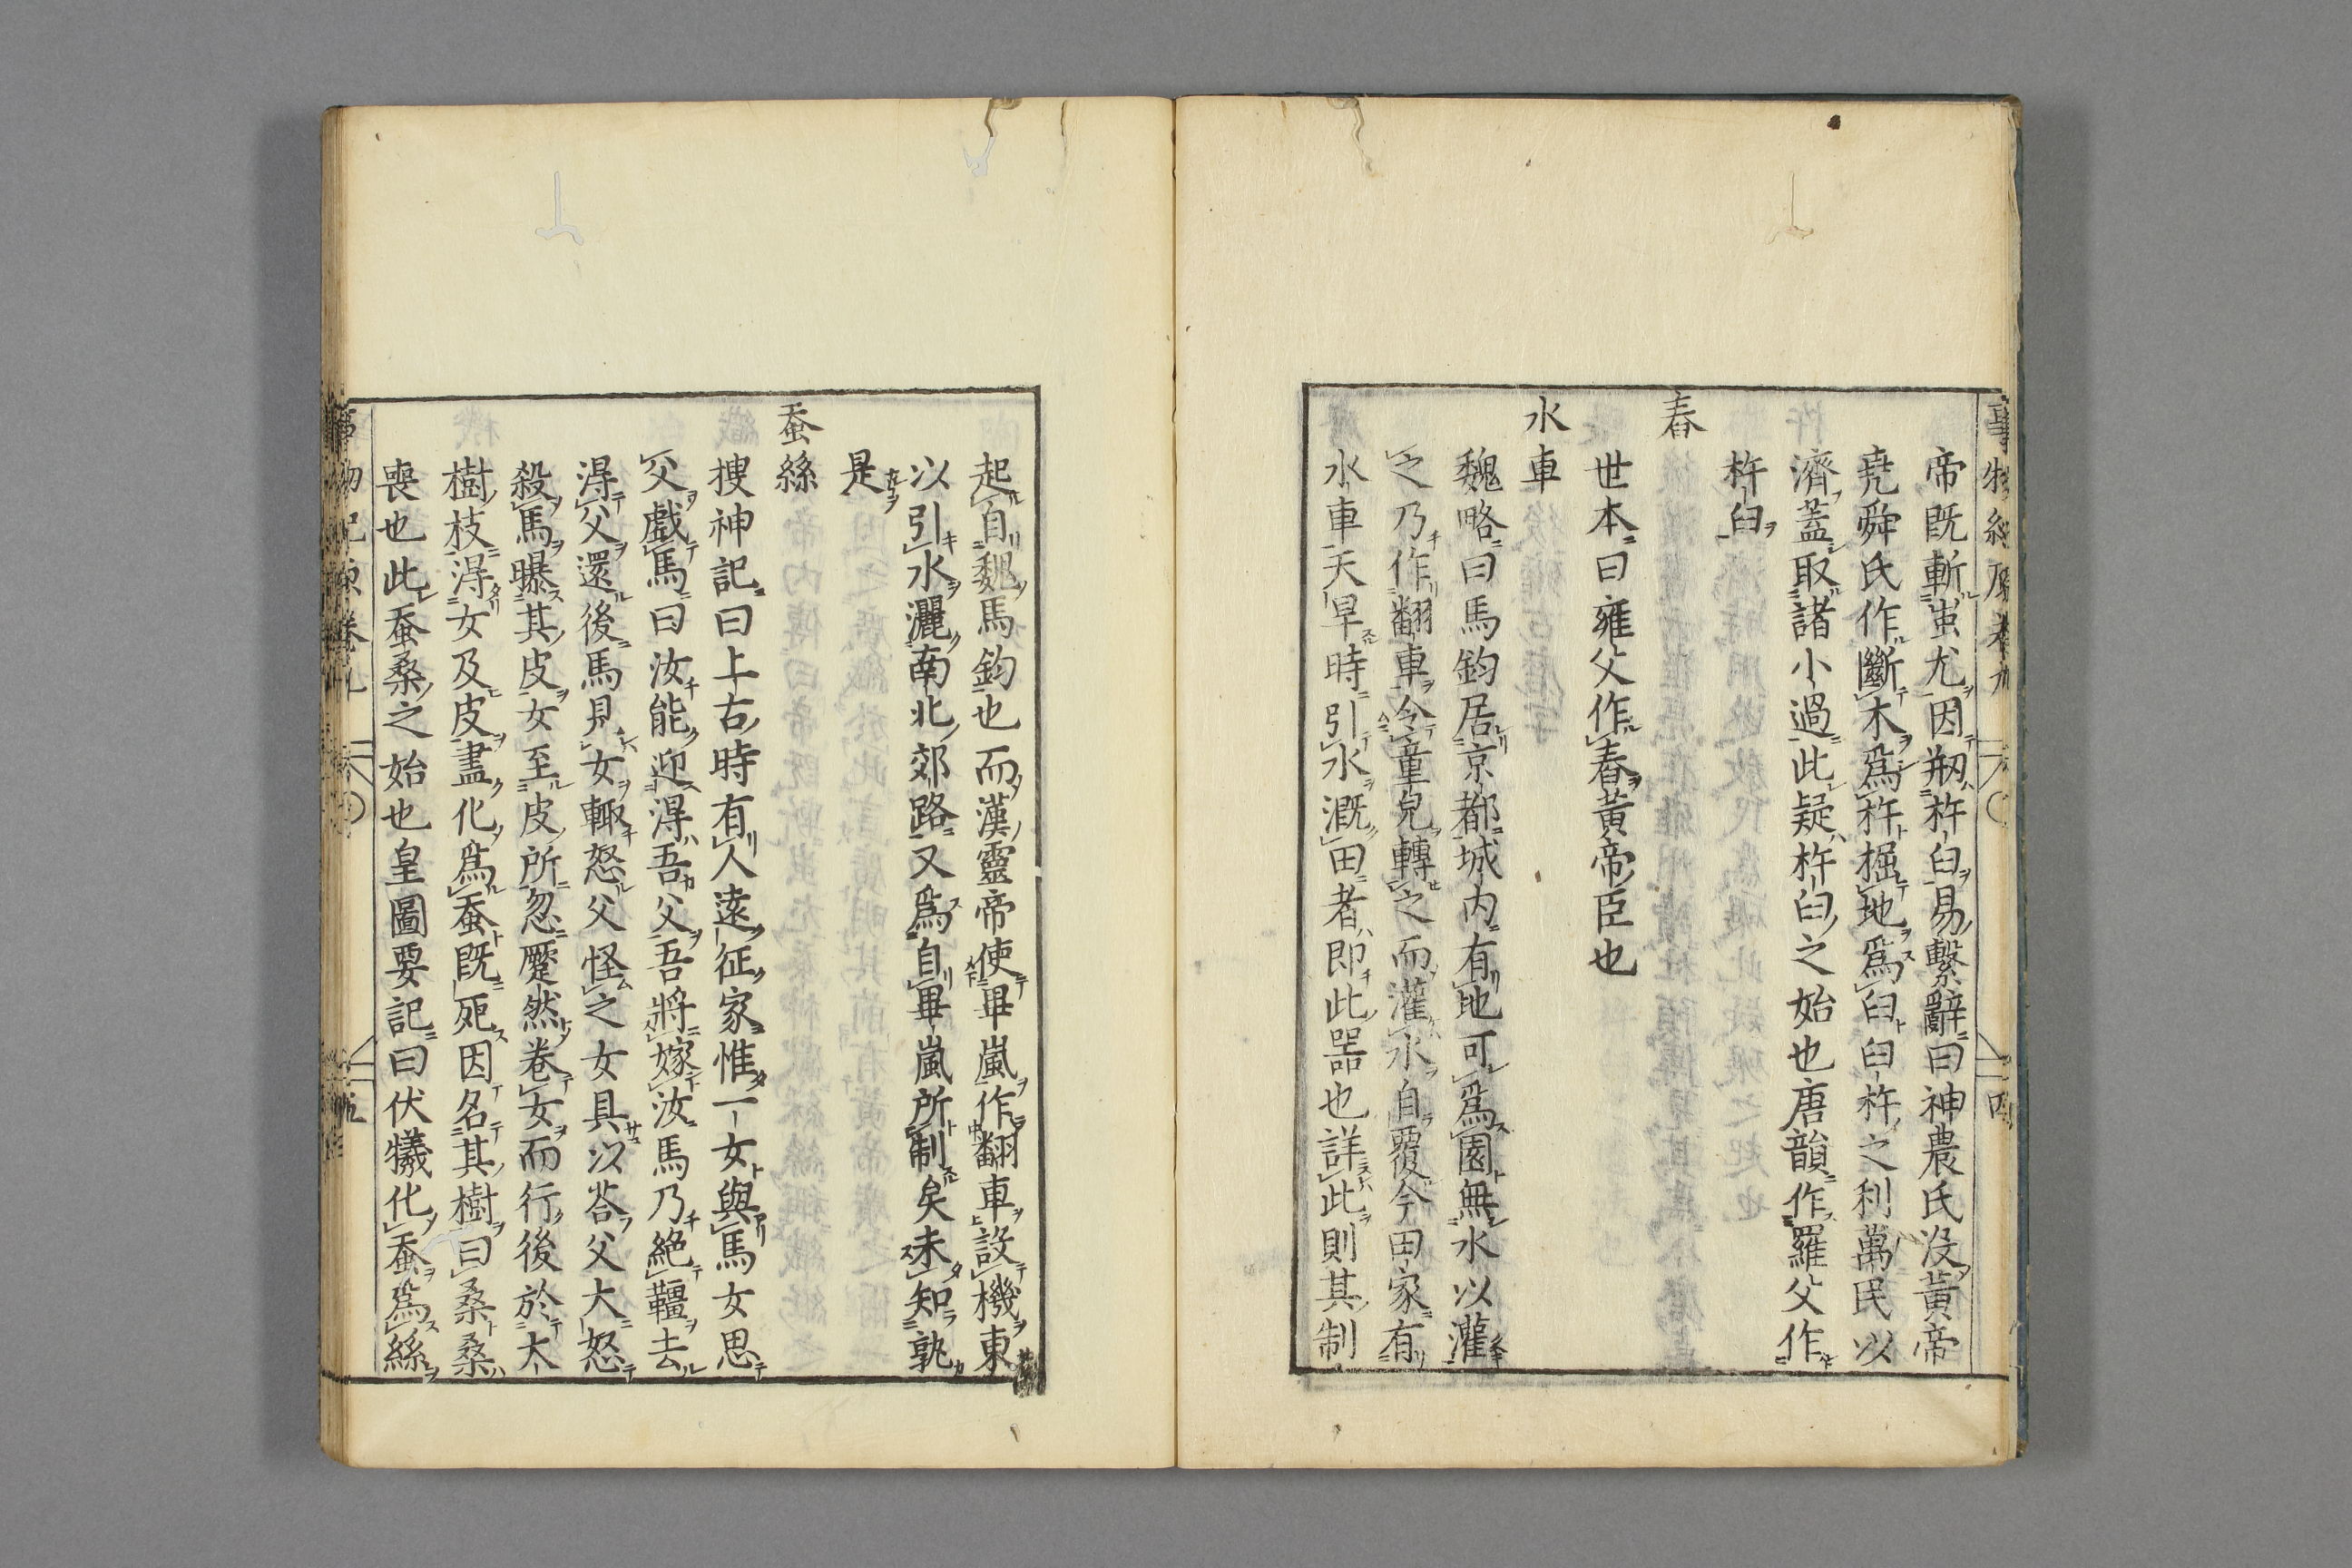 帝既斬蚩尤因剏杵臼易繫辭曰神農氏没黃帝
堯舜氏作斷木爲杵掘地爲臼臼杵之利萬民以
濟蓋取諸小過此疑杵臼之始也唐韻作羅父作
杵臼
舂
世本曰雍父作舂黃帝臣也
水車
魏略曰馬鈞居京都城内有地可爲園無水以灌
之乃作翻車令童兒轉之而灌水自覆今田家有
水車天旱時引水溉田者即此器也詳此則其制
起自魏馬鈞也而漢靈帝使畢嵐作翻車設機東
以引水灑南北郊路又爲自畢嵐所制矣未知孰
是
蚕絲
搜神記曰上古時有人遠征家惟一女與馬女思
父戲馬曰汝能迎得吾父吾將嫁汝馬乃絕韁去
得父還後馬見女輒怒父怪之女具以荅父大怒
殺馬曝其皮女至皮所忽蹷然卷女而行後於大
樹枝得女及皮盡化爲蚕既死因名其樹曰桑桑
喪也此蚕桑之始也皇圖要記曰伏犧化蚕爲絲